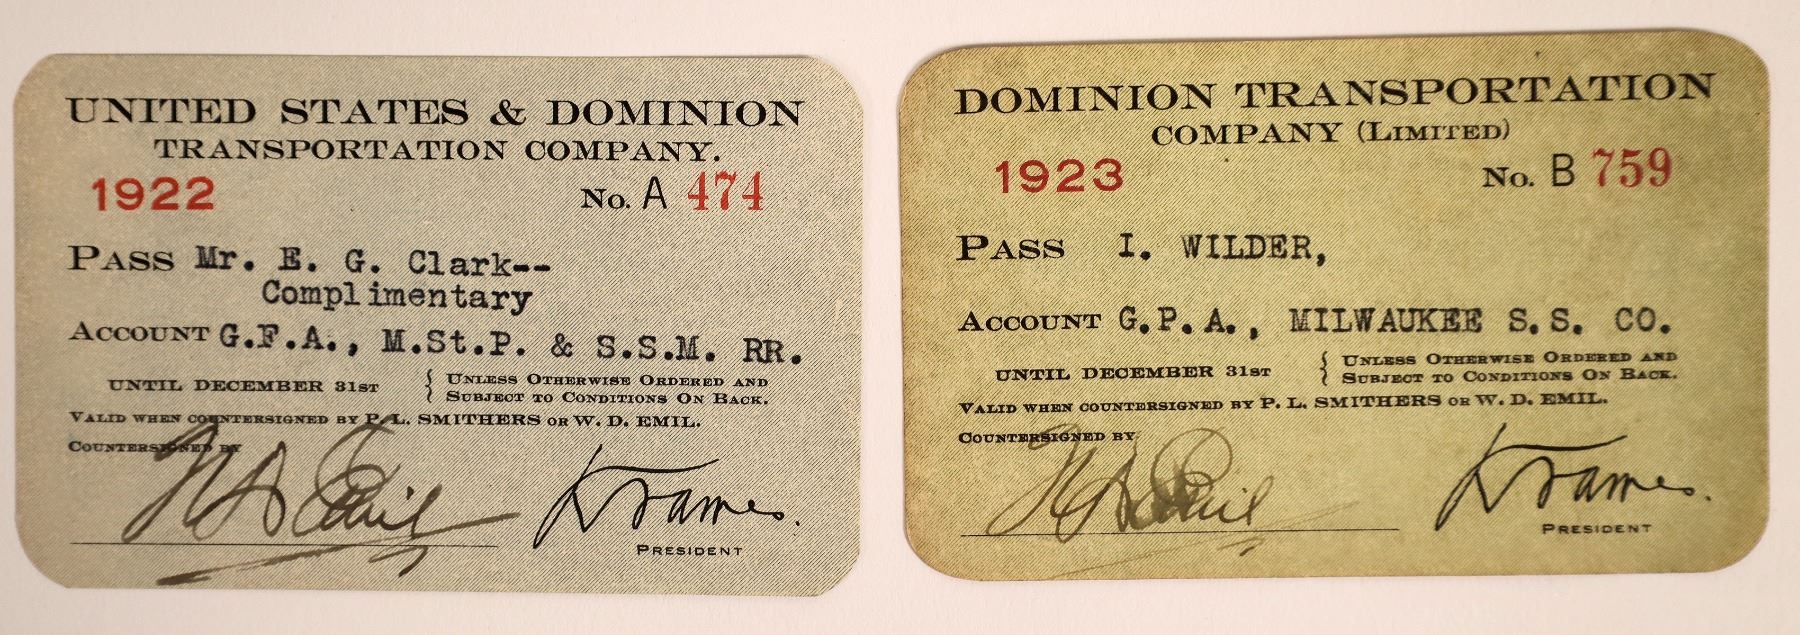 UNITED STATES & DOMINION
TRANSPORTATION COMPANY.
1922 No. A 474
PASS Mr. E. G. Clark--
Complimentary
ACCOUNT G.F.A., M.St.P. & S.S.M. RR.
UNTIL DECEMBER 31ST { UNLESS OTHERWISE ORDERED AND
SUBJECT TO CONDITIONS ON BACK.
VALID WHEN COUNTERSIGNED BY P. L. SMITHERS OR W. D. EMIL.
COUNTERSIGNED BY
PRESIDENT
DOMINION TRANSPORTATION
COMPANY (LIMITED)
1923 No. B 759
PASS I. WILDER,
ACCOUNT G.P.A., MILWAUKEE S.S. CO.
UNTIL DECEMBER 31ST { UNLESS OTHERWISE ORDERED AND
SUBJECT TO CONDITIONS ON BACK.
VALID WHEN COUNTERSIGNED BY P. L. SMITHERS OR W. D. EMIL.
COUNTERSIGNED BY
PRESIDENT